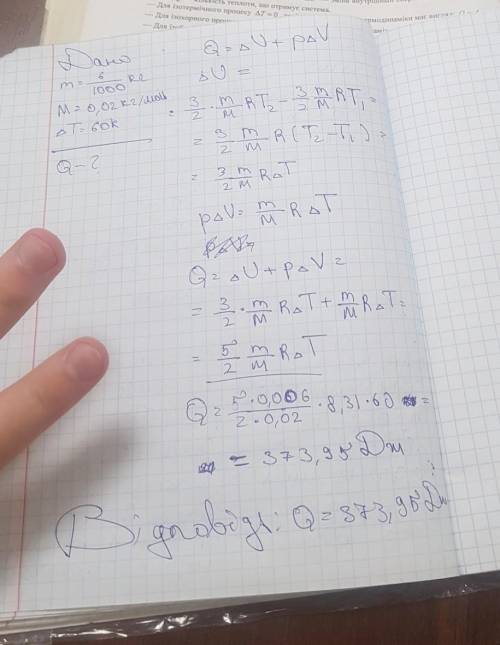 кількість теплоти, що отримує система.
— Для ізотермічного процесу ΔT = 0
— Для ізохорного
Дано
m = 6/1000 кг
M = 0,02 кг/моль
ΔT = 60К
Q – ?
Q = ΔU + pΔV
ΔU =
= 3/2 · m/M RT₂ – 3/2 m/M RT₁ =
= 3/2 m/M R (T₂ – T₁) =
= 3/2 m/M RΔT
pΔV = m/M RΔT
Q = ΔU + pΔV =
= 3/2 · m/M RΔT + m/M RΔT =
= 5/2 m/M RΔT
Q = 5·0,006/2·0,02 · 8,31·60 =
= 373,95 Дж
Відповідь: Q = 373,95 Дж